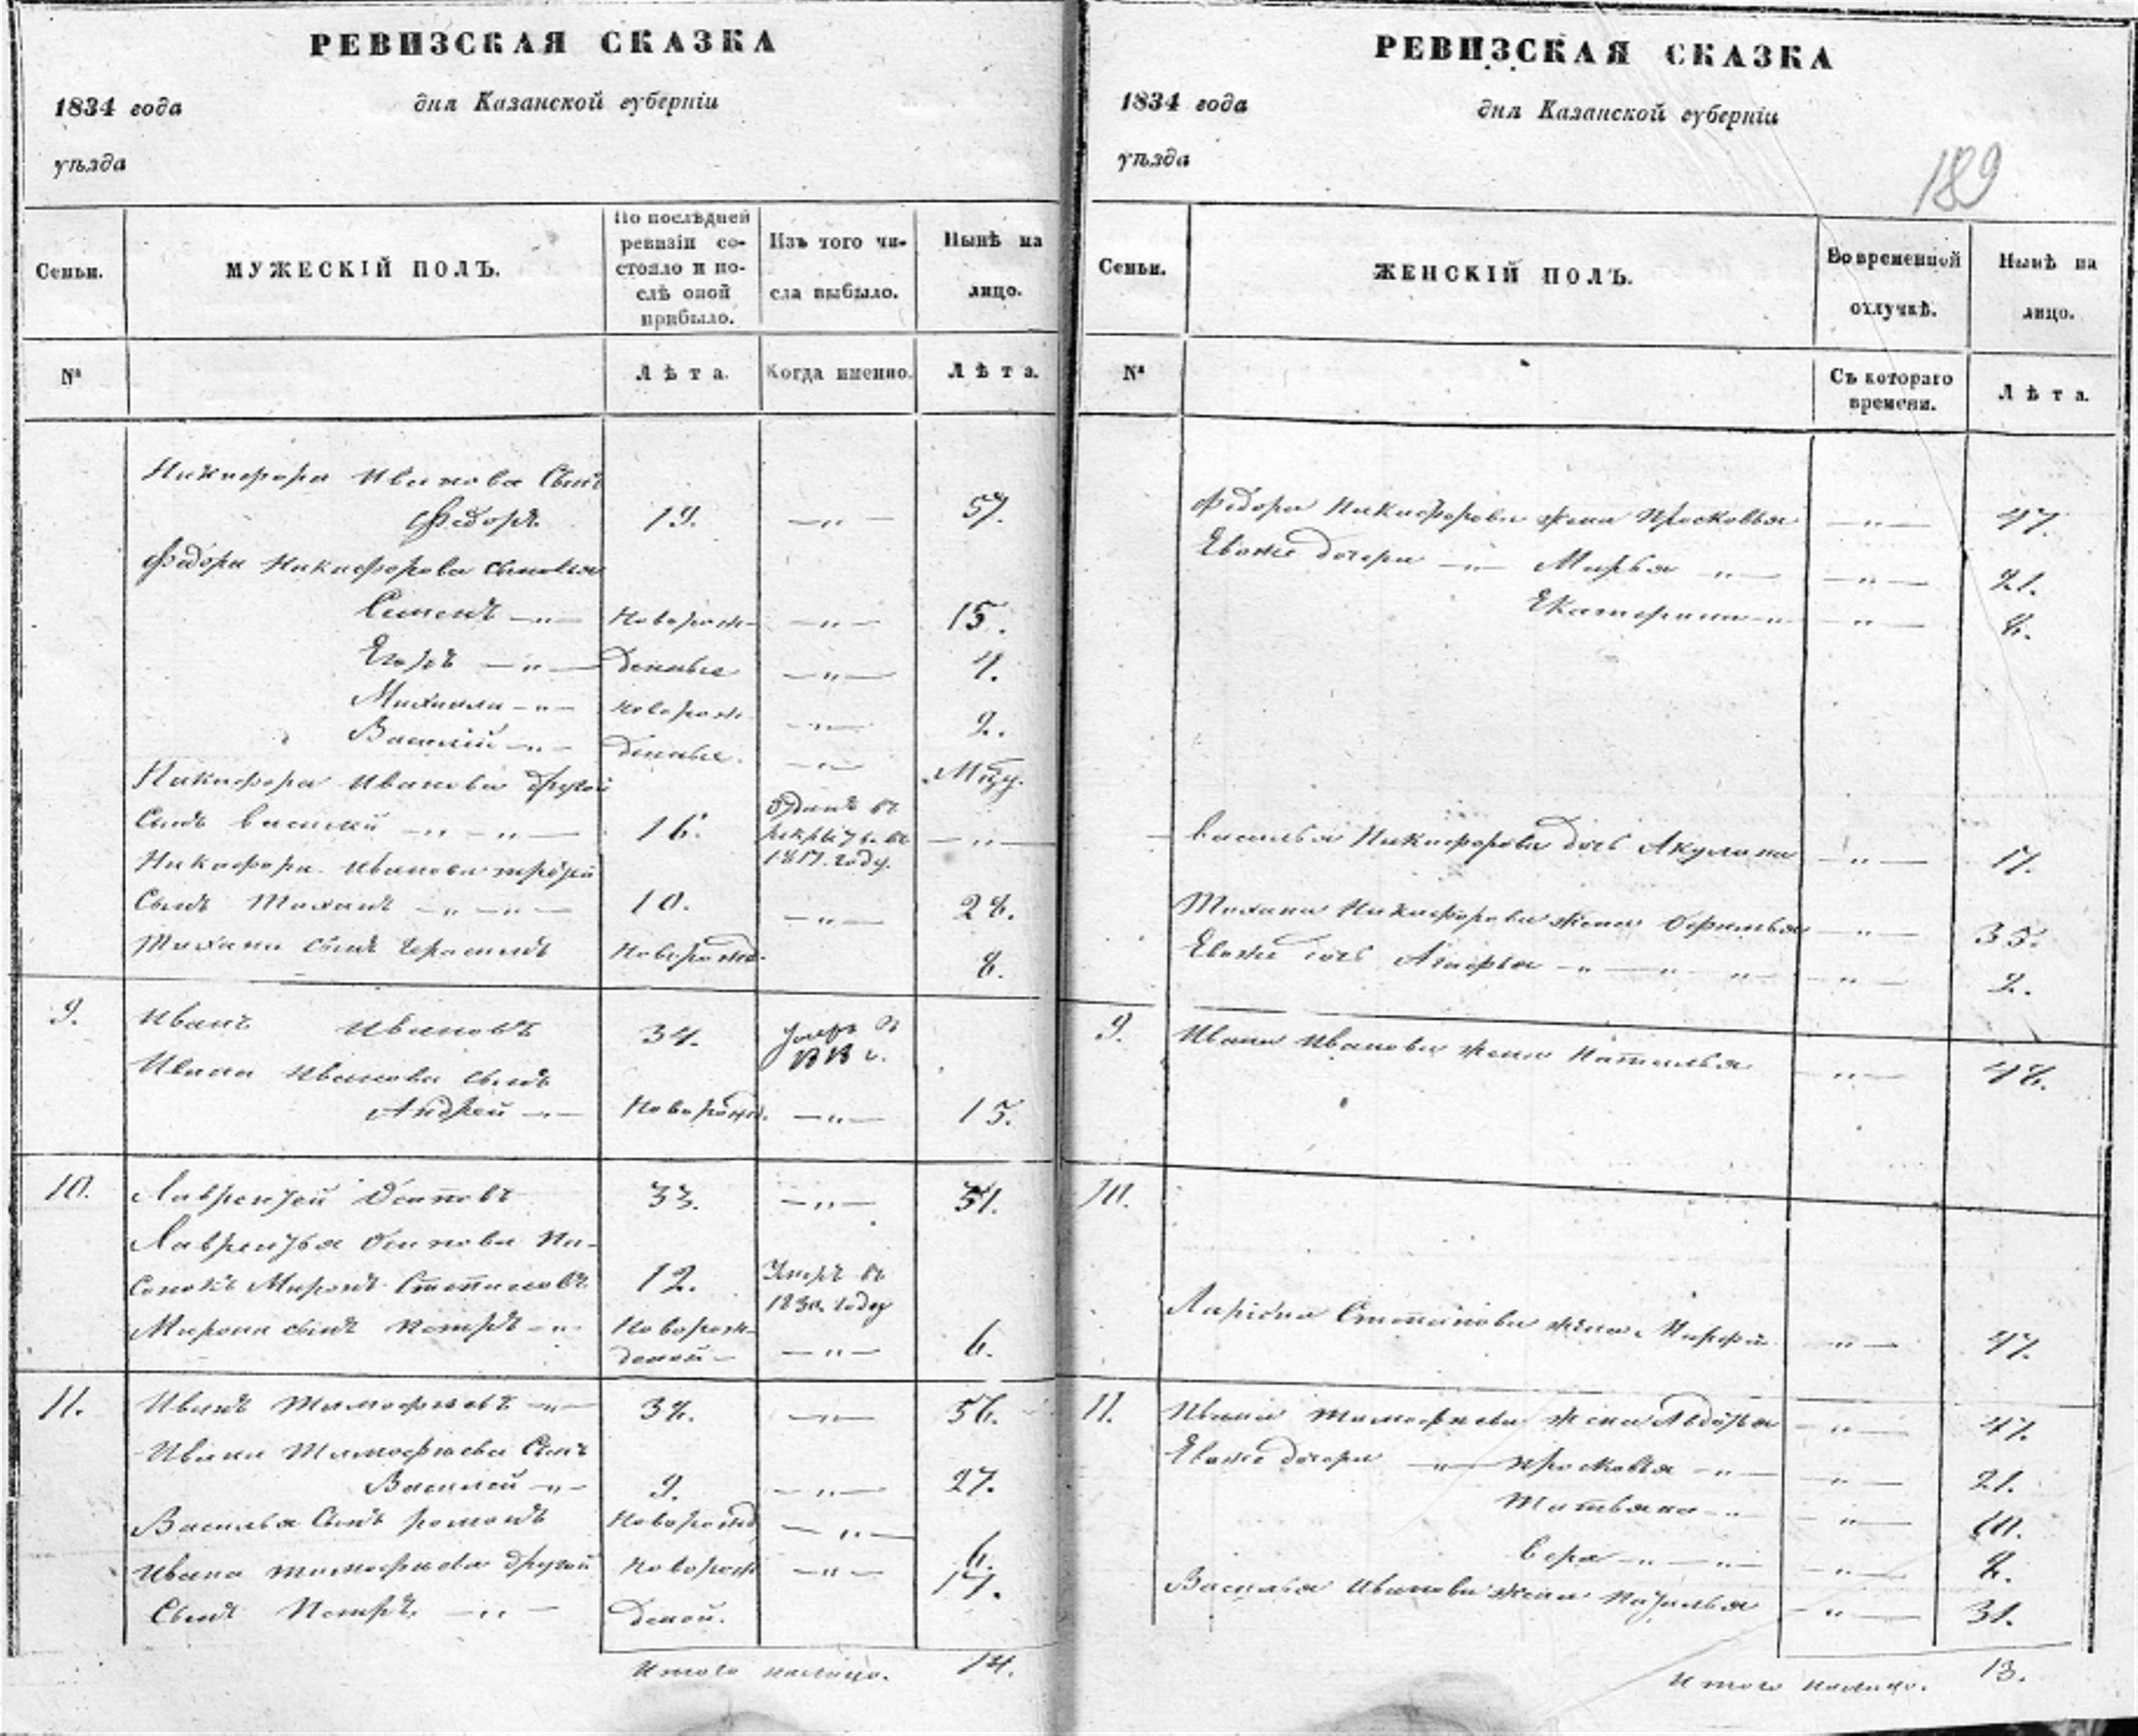 РЕВИЗСКАЯ СКАЗКА
1834 года
дня Казанской губерніи
уѣзда
Семьи.
МУЖЕСКІЙ ПОЛЪ.
По послѣдней
ревизіи со-
стояло и по-
слѣ оной
прибыло.
Изъ того чи-
сла выбыло.
Нынѣ на
лицо.
№
Лѣта.
Когда именно.
Лѣта.
Никифора Иванова Сынъ
Федоръ 19. —„— 57.
Федора Никифорова сыновья
Семенъ —„— Новорож- —„— 15.
Егоръ —„— денные —„— 4.
Михаила —„— новорож- —„— 2.
Василий —„— денные. —„—
Никифора Иванова другой
Сынъ Василий —„—„— 16. Отданъ въ рекруты въ году. —„—
Никифора Иванова третей
Сынъ Тихонъ —„—„— 10. —„— 28.
Тихона сынъ Герасимъ Новорожд. 8.
9. Иванъ Ивановъ 34.
Ивана Иванова сынъ
Андрей —„— Новорожд. —„— 15.
10. Лаврентей Осиповъ 33. —„— 51.
Лаврентья Осипова Па-
сынокъ Миронъ Степановъ 12. Умеръ въ 1830. году
Мирона сынъ Петръ —„— Новорож- деной —„— 6.
11. Иванъ Тимофеевъ —„— 38. —„— 56.
Ивана Тимофеева Сынъ
Василей —„— 9. —„— 27.
Василья Сынъ Романъ Новорожд —„— 6.
Ивана Тимофеева другой Новорож —„— 17.
Сынъ Петръ. —„— деной.
Итого налицо. 14.
РЕВИЗСКАЯ СКАЗКА
1834 года
дня Казанской губерніи
уѣзда
189
Семьи.
ЖЕНСКІЙ ПОЛЪ.
Во временной
отлучкѣ.
Нынѣ на
лицо.
№
Съ котораго
времени.
Лѣта.
Федора Никифорова жена Просковья —„— 47.
Ево же дочери —„— Марья —„— —„— 21.
Екатерина —„— —„— 8.
Василья Никифорова дочь Акулина —„— 17.
Тихона Никифорова жена Офимья —„— 35.
Ево же дочь —„—„—„— —„— 2.
9. Ивана Иванова жена Наталья —„— 48.
10.
Степанова жена —„— 47.
11. Ивана Тимофеева жена Авдотья —„— 47.
Ево же дочери —„— Просковья —„— —„— 21.
Татьяна —„— —„— 10.
Вера —„—„— —„— 8.
Василья Иванова жена Наталья —„— 31.
Итого налицо. 13.